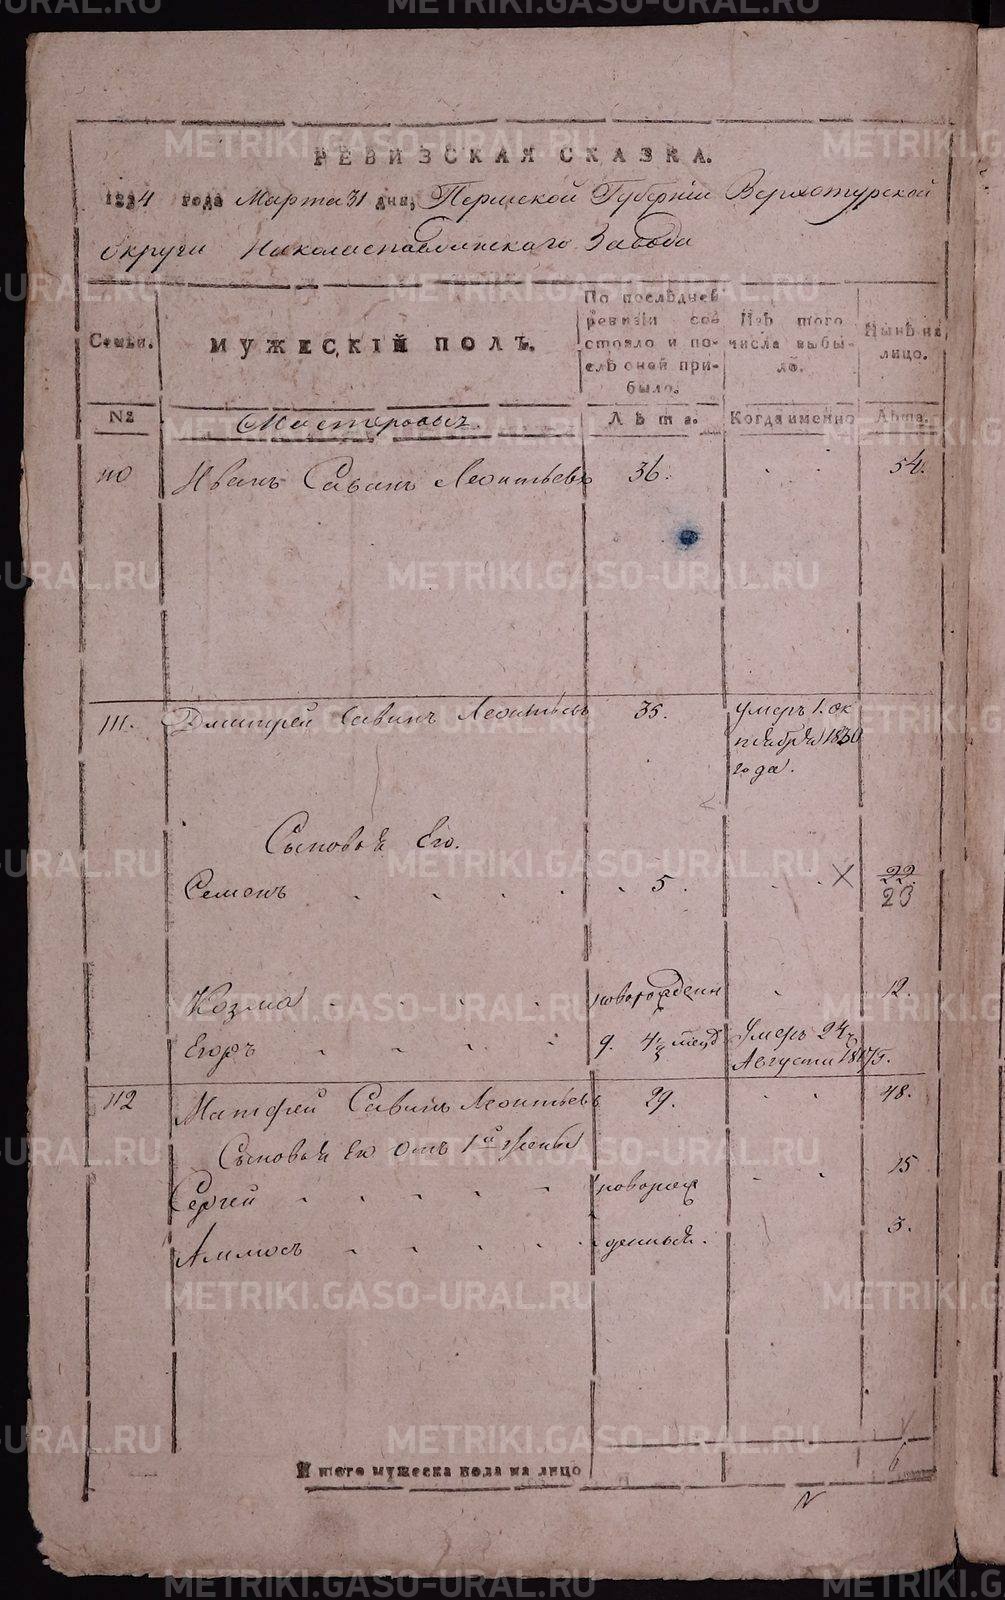 РЕВИЗСКАЯ СКАЗКА.
1834 года Марта 31 дня, Пермской Губернїи Верхотурской
Округи Николаепавдинскаго Завода
Семьи.
МУЖЕСКІЙ ПОЛЪ.
По послѣдней ревизіи состояло и послѣ оной прибыло.
Изъ того числа выбыло.
Нынѣ на лицо.
№
Мастеровыхъ.
Лѣта.
Когда именно
Лѣта.
110 Иванъ Савинъ Леонтьевъ 36. 54.
111. Дмитрей Савинъ Леонтьевъ 35. умеръ 1. ок
тября 1830
года.
Сыновья Его.
Семенъ 5. 22
23
Козма новорожденн 12.
Егоръ Умеръ 24
Августа 1815.
112 Матфей Савинъ Леонтьевъ 29. 48.
Сыновья Ея Отъ 1й жены
Сергей новорож 15
Аммосъ денныя. 3.
Итого мужеска пола на лицо 6
METRIKI.GASO-URAL.RU